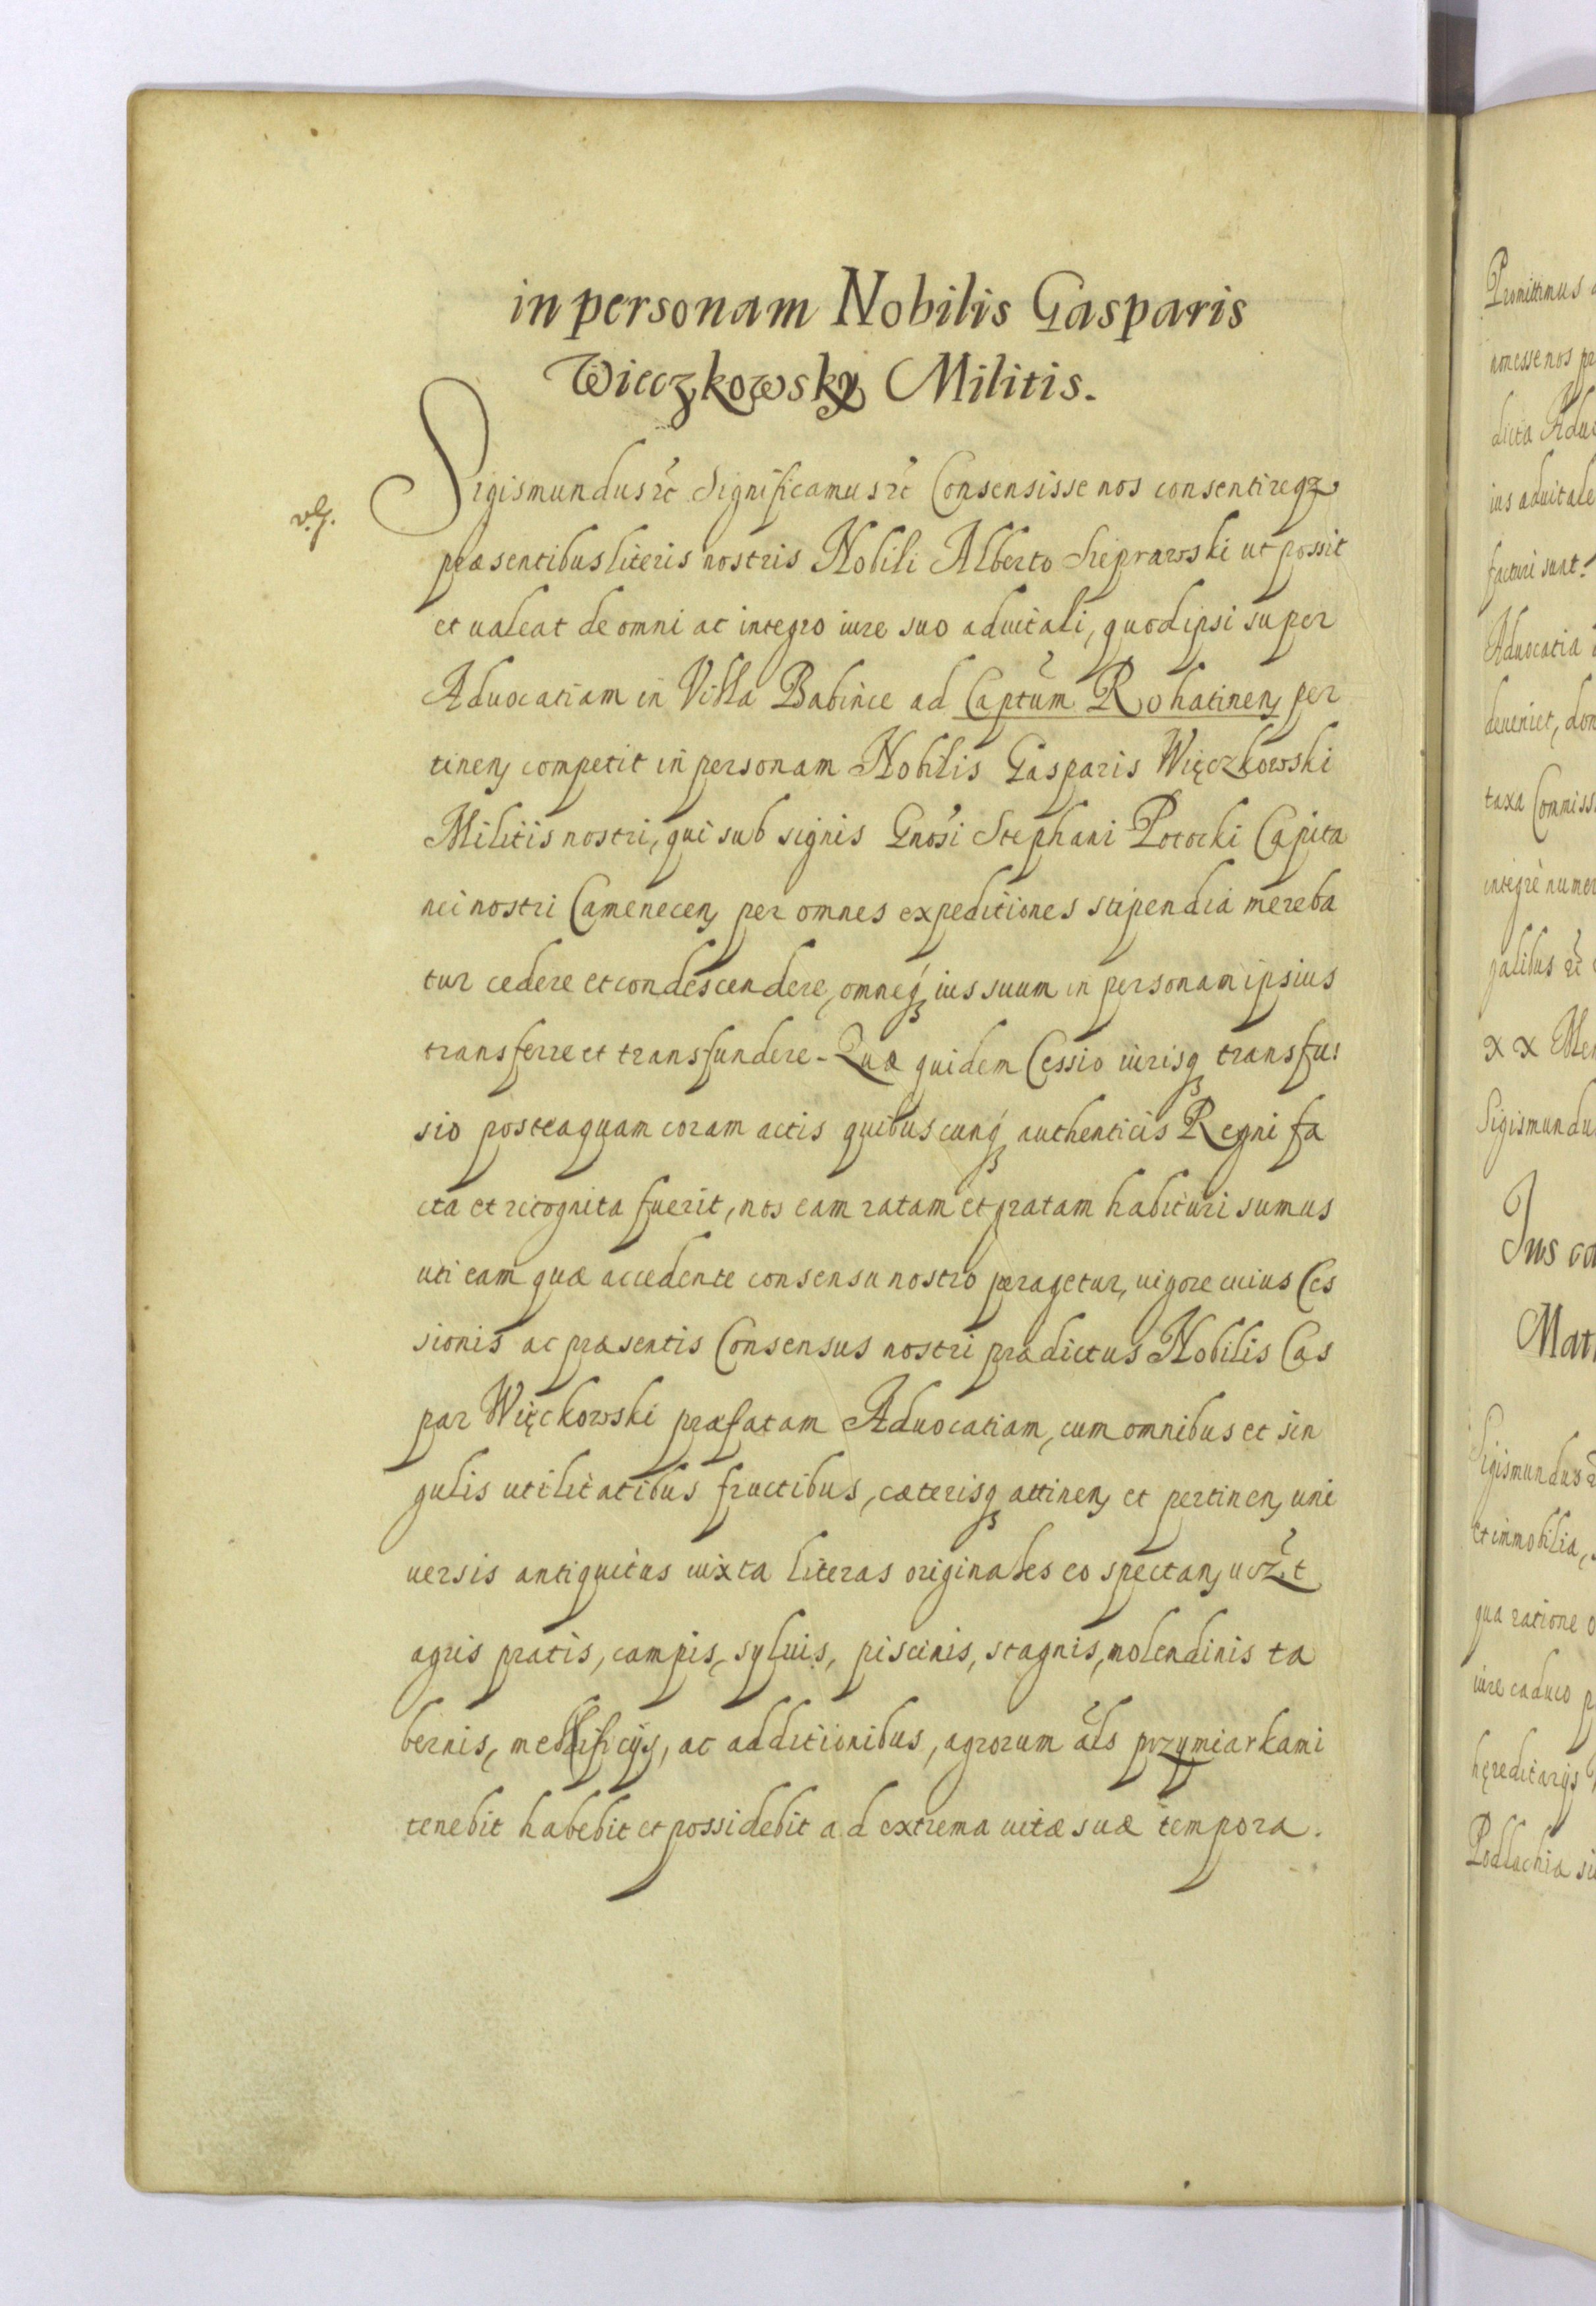 in personam Nobilis Gasparis
Wieczkowsky Militis.
vlg.
Sigismundus etc Significamus etc Consensisse nos consentireqz
præsentibus literis nostris Nobili Alberto ut possit
et ualeat de omni ac integro iure suo aduitali, quod ipsi super
Aduocatiam in Villa Babince ad Captum Rohatinen per
tinen competit in personam Nobilis Gasparis Więczkowski
Militis nostri, qui sub signis Gnosi Stephani Potocki Capita
nei nostri Camenecen per omnes expeditiones stipendia mereba
tur cedere et condescendere, omneq ius suum in personam ipsius
transferre et transfundere - Quæ quidem Cessio iurisq transfu:
sio posteaquam coram actis quibuscunq authenticis Regni fa
cta et recognita fuerit, nos eam ratam et gratam habituri sumus
uti eam quæ accedente consensu nostro peragetur, uigore cuius Ces
sionis ac præsentis Consensus nostri prædictus Nobilis Cas
par Więckowski præfatam Aduocatiam, cum omnibus et sin
gulis utilitatibus fructibus, cæterisq attinen et pertinen uni
uersis antiquitus iuxta literas originales eo spectan uidzt
agris pratis, campis, syluis, piscinis, stagnis, molendinis ta
bernis, mellificijs, ac additionibus, agrorum als przymiarkami
tenebit habebit et possidebit ad extrema uitæ suæ tempora.
Promittimus
non esse nos
dicta
ius aduitale
facturi sunt.
Aduocatia
deueniet,
taxa
integrè
galibus etc
Sigismundu
Ius
Sigismundus
et immobilia,
qua ratione
iure caduco
hęreditarijs
Podlachia